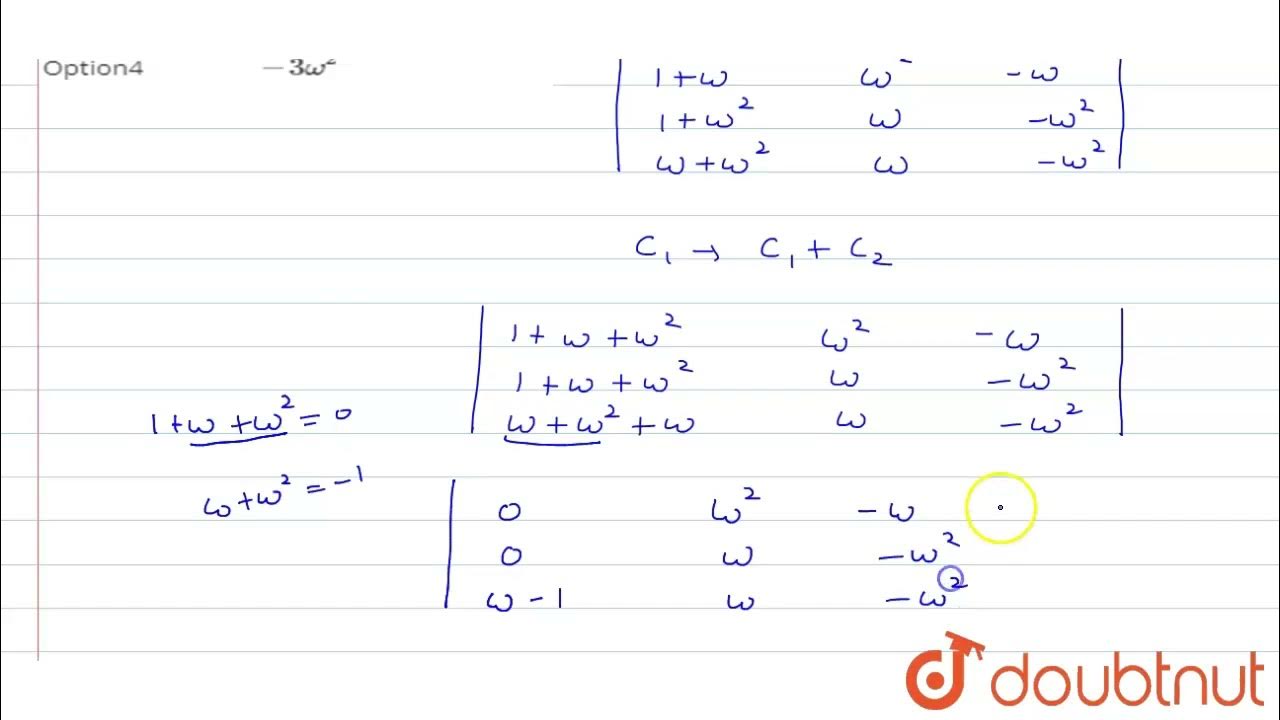 Option4 −3ω²
| 1+ω ω² −ω |
| 1+ω² ω −ω² |
| ω+ω² ω −ω² |
C₁ → C₁ + C₂
| 1+ω+ω² ω² −ω |
| 1+ω+ω² ω −ω² |
1+ω+ω² = 0
| ω+ω²+ω ω −ω² |
ω+ω² = −1
| 0 ω² −ω
| 0 ω −ω²
| ω−1 ω −ω²
doubtnut